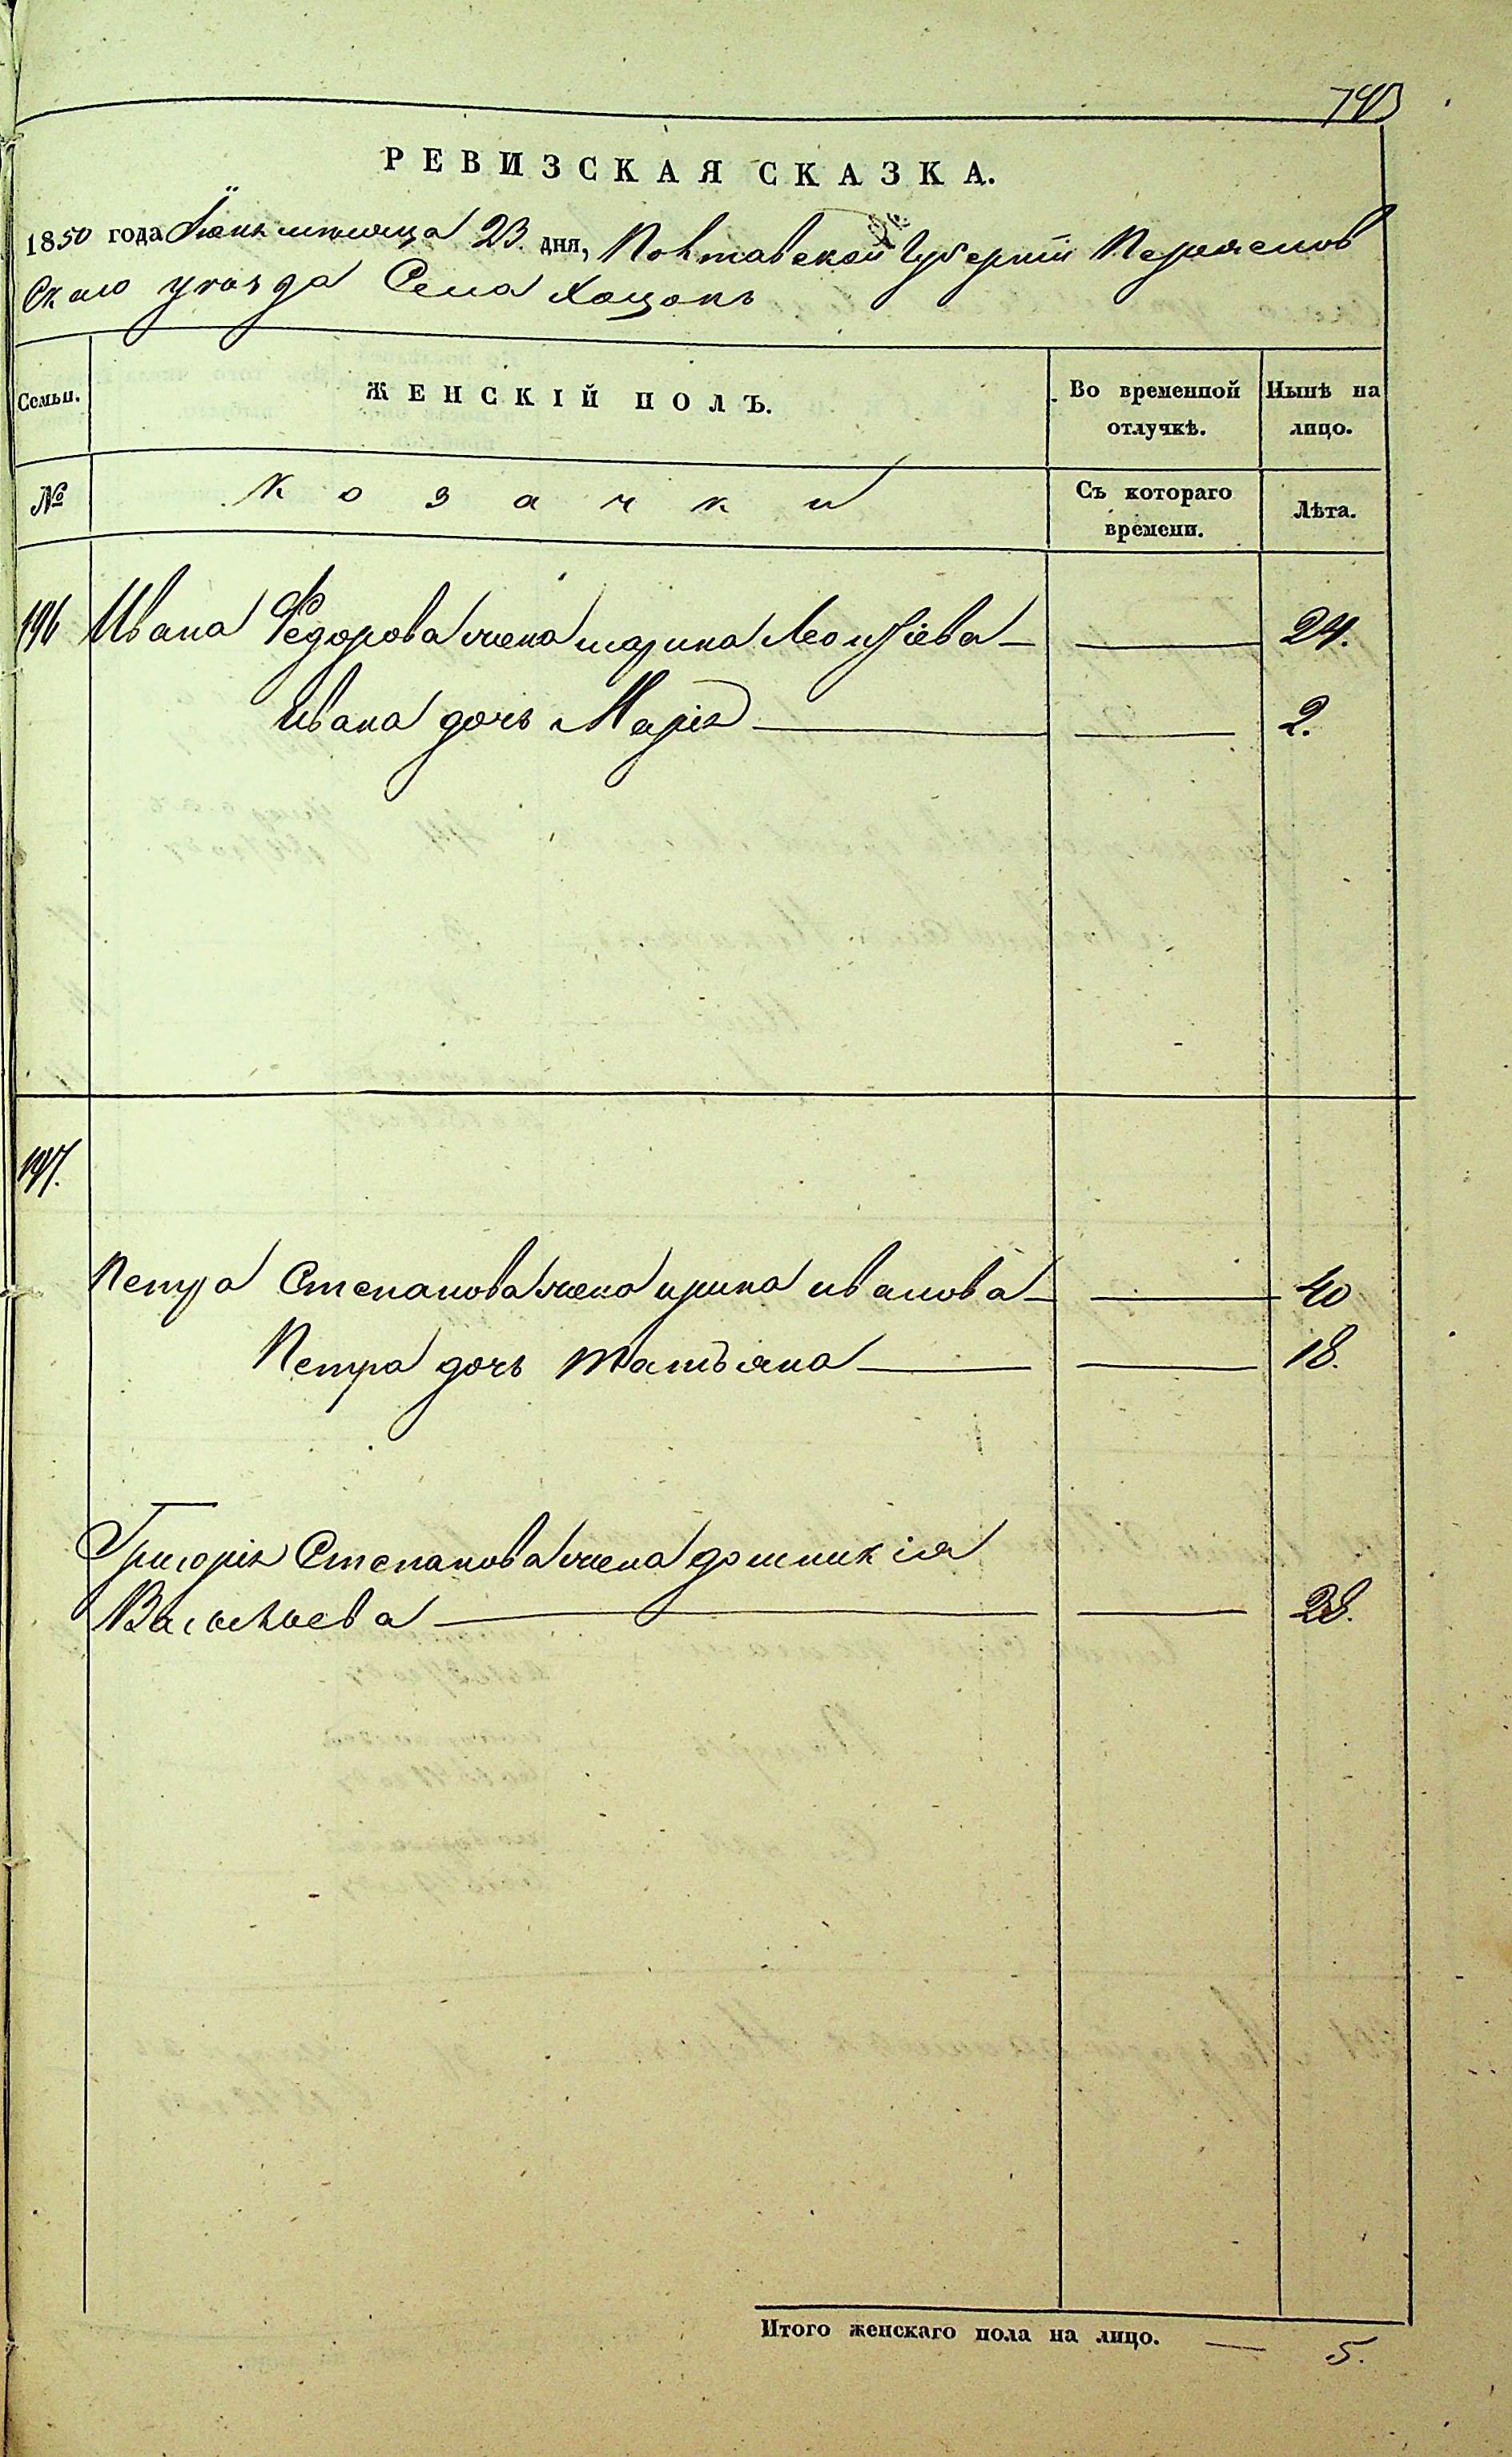 743
РЕВИЗСКАЯ СКАЗКА.
1850 года Іюня месяца 23. дня, Полтавской Губерніи Переяслов
скаго уезда Села Хоцокъ
Семьи.
ЖЕНСКІЙ ПОЛЪ.
Во временной отлучкѣ.
Нынѣ на лицо.
№
Козачки
Съ котораго времени.
Лѣта.
196 Ивана Федорова жена марина Леонтіева — — 24.
Ивана дочь Марія — — 2.
197.
Петра Степанова жена ирина иванова — — 40
Петра дочь татьяна — — 18.
Григорія Степанова жена домникія
Васильева — — 28.
Итого женскаго пола на лицо. — 5.